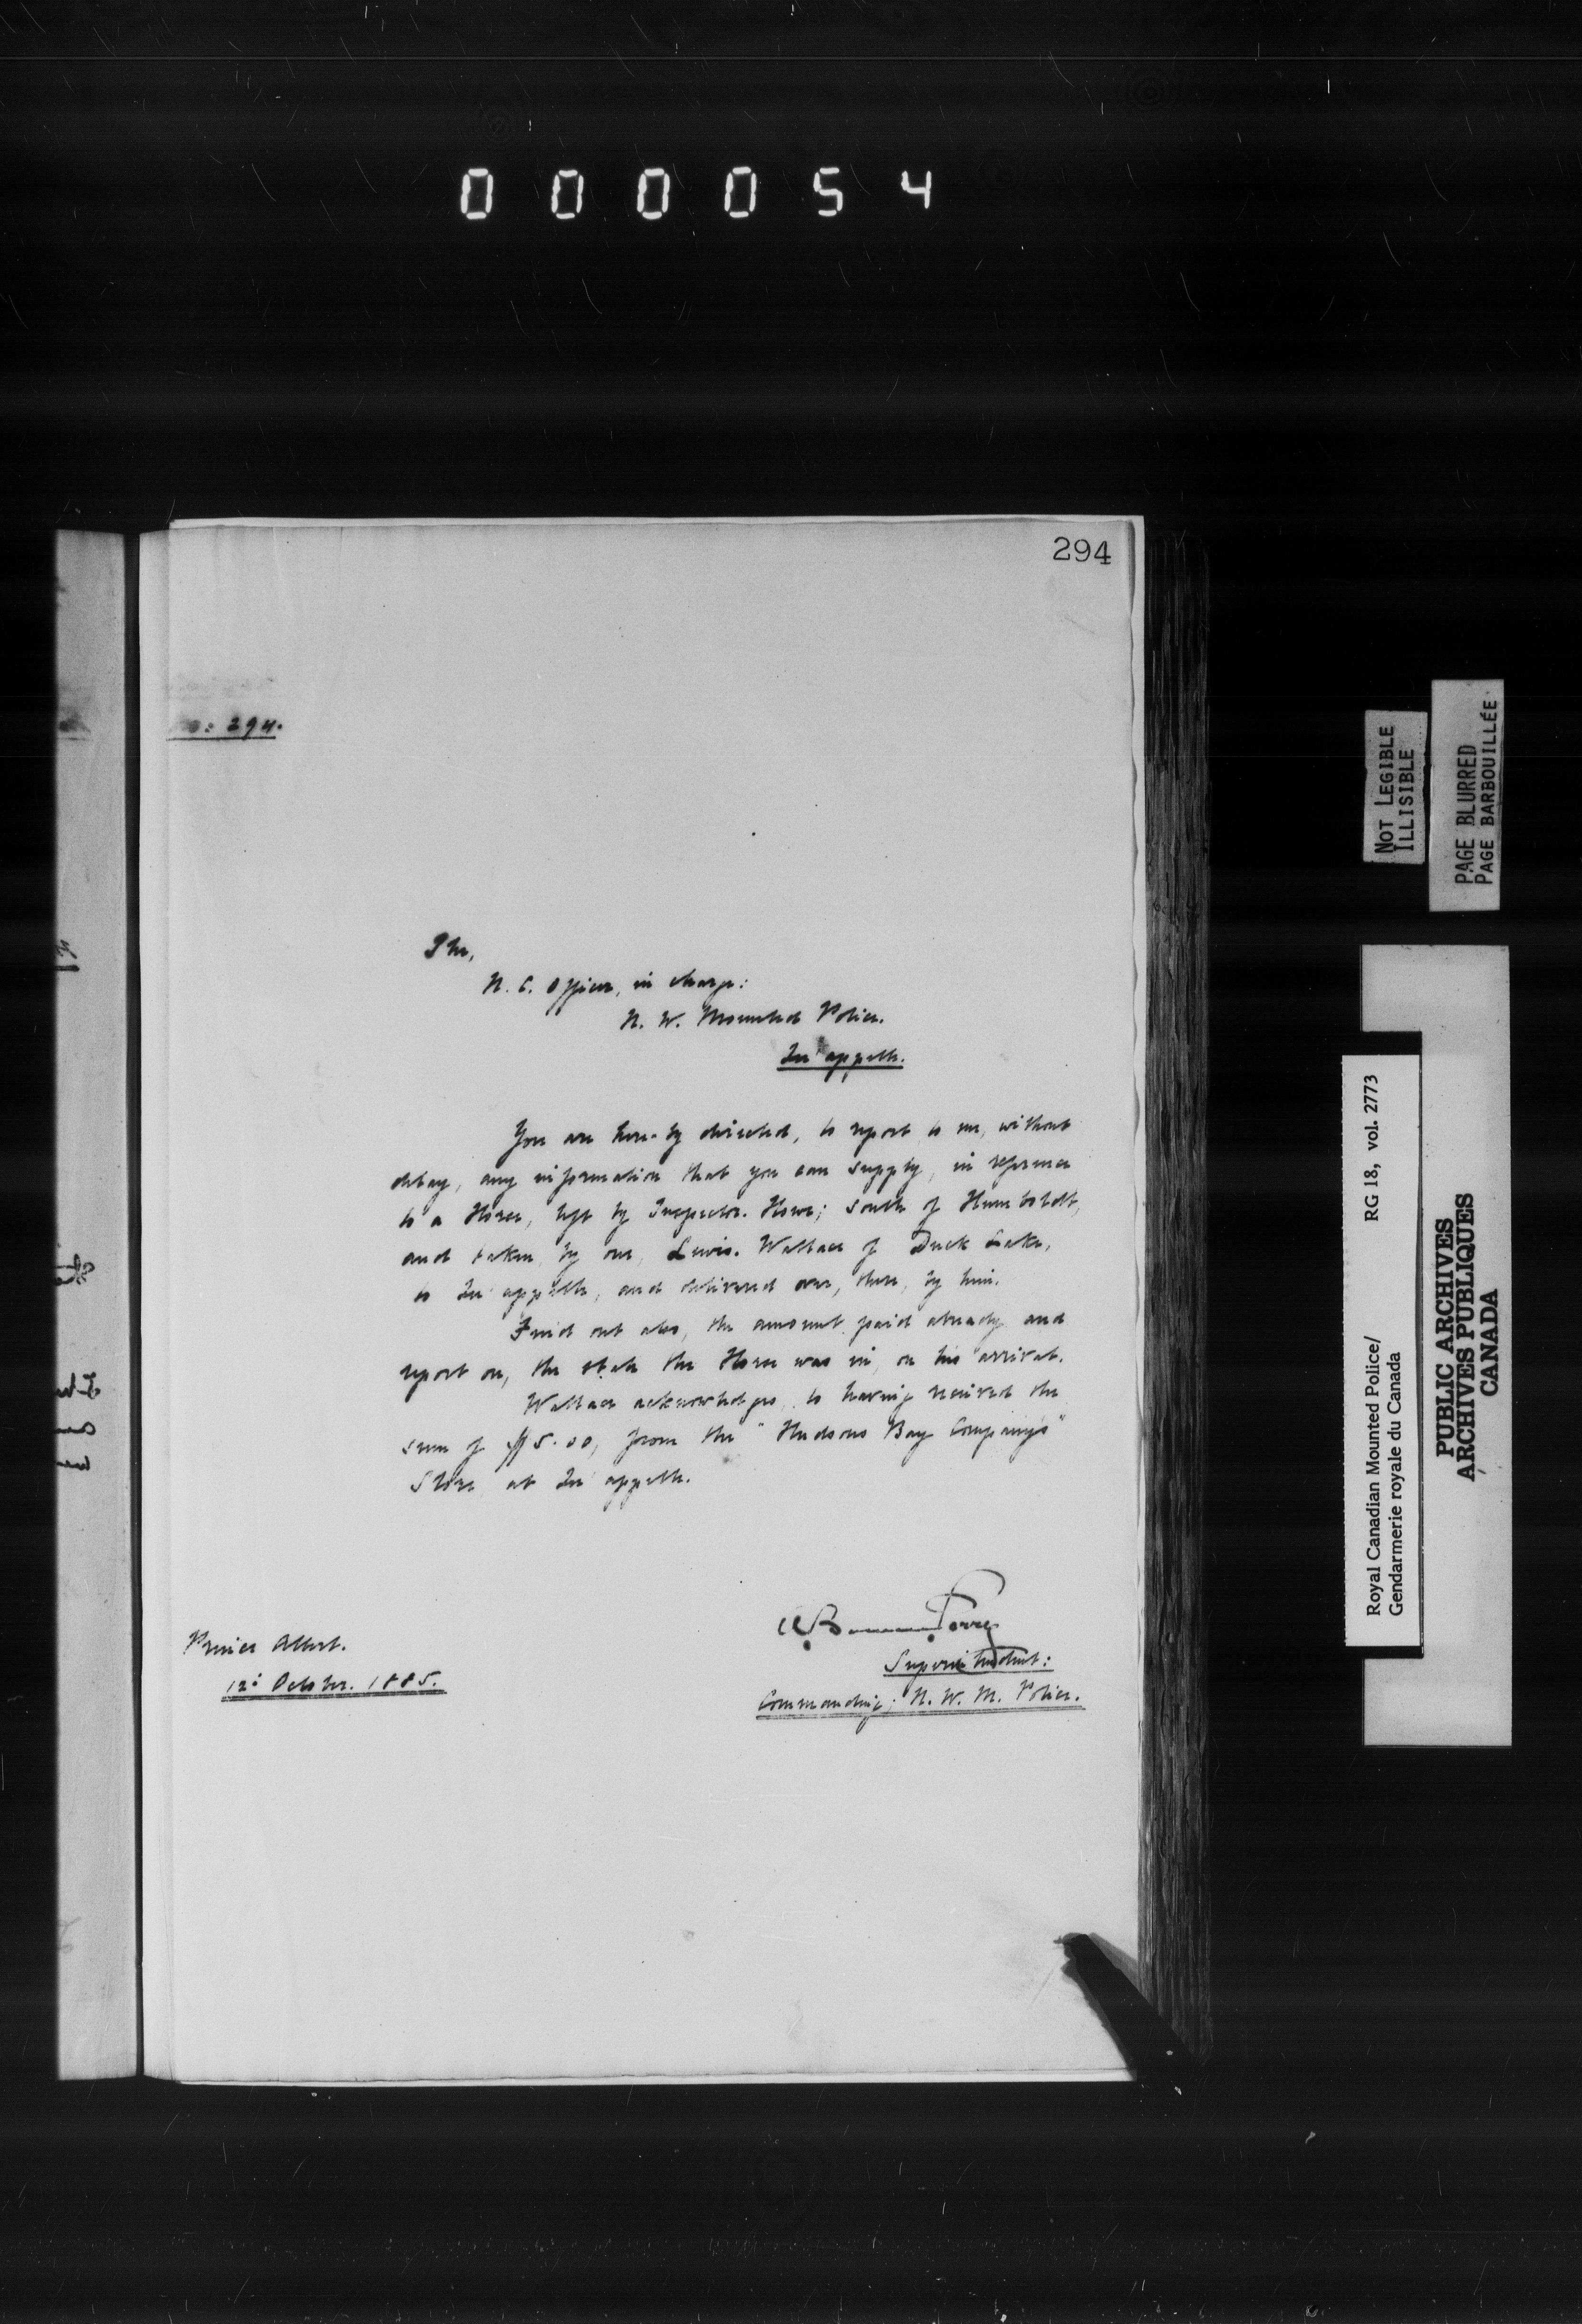 000054
294
No: 294.
The,
N. C. Officer, in charge:
N. W. Mounted Police.
Qu'appelle.
You are here-by directed, to report to me, without
delay, any information that you can supply, in reference
to a Horse, left by Inspector. Howe; South of Humboldt,
and taken, by one, Lewis. Wallace of Duck Lake,
to Qu'appelle, and delivered over, there, by him.
Find out also, the amount paid already and
report on, the state the Horse was in, on his arrival.
Wallace acknowledges, to having received the
sum of $5.00, from the "Hudsons Bay Company's"
Store at Qu'appelle.
A. Bowen Perry
Superintendent:
Commanding; N. W. M. Police.
Prince Albert.
12: October. 1885.
NOT LEGIBLE
ILLISIBLE
PAGE BLURRED
PAGE BARBOUILLÉE
Royal Canadian Mounted Police/ RG 18, vol. 2773
Gendarmerie royale du Canada
PUBLIC ARCHIVES
ARCHIVES PUBLIQUES
CANADA